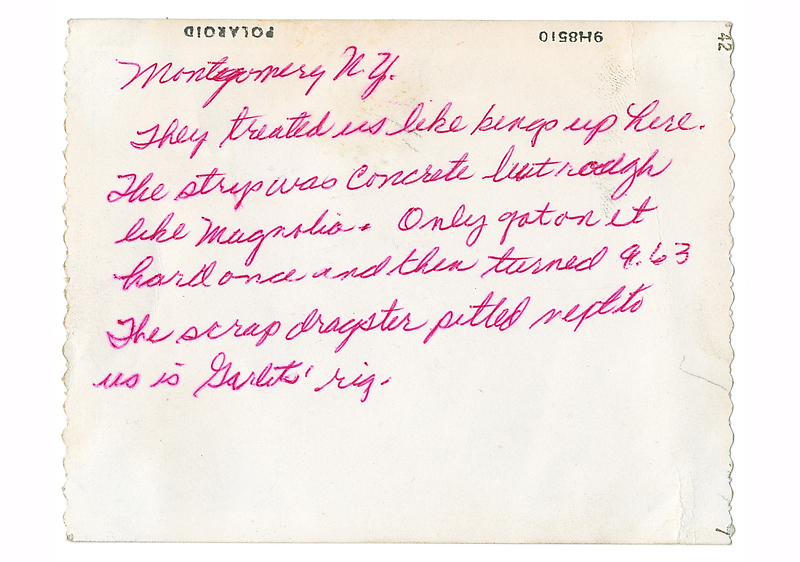 POLAROID
9H8510
42
Montgomery N.Y.
They treated us like kings up here.
The strip was concrete but rough
like Magnolia. Only got on it
hard once and then turned 9.63
The scrap dragster pitted next to
us is Garlits' rig.
7